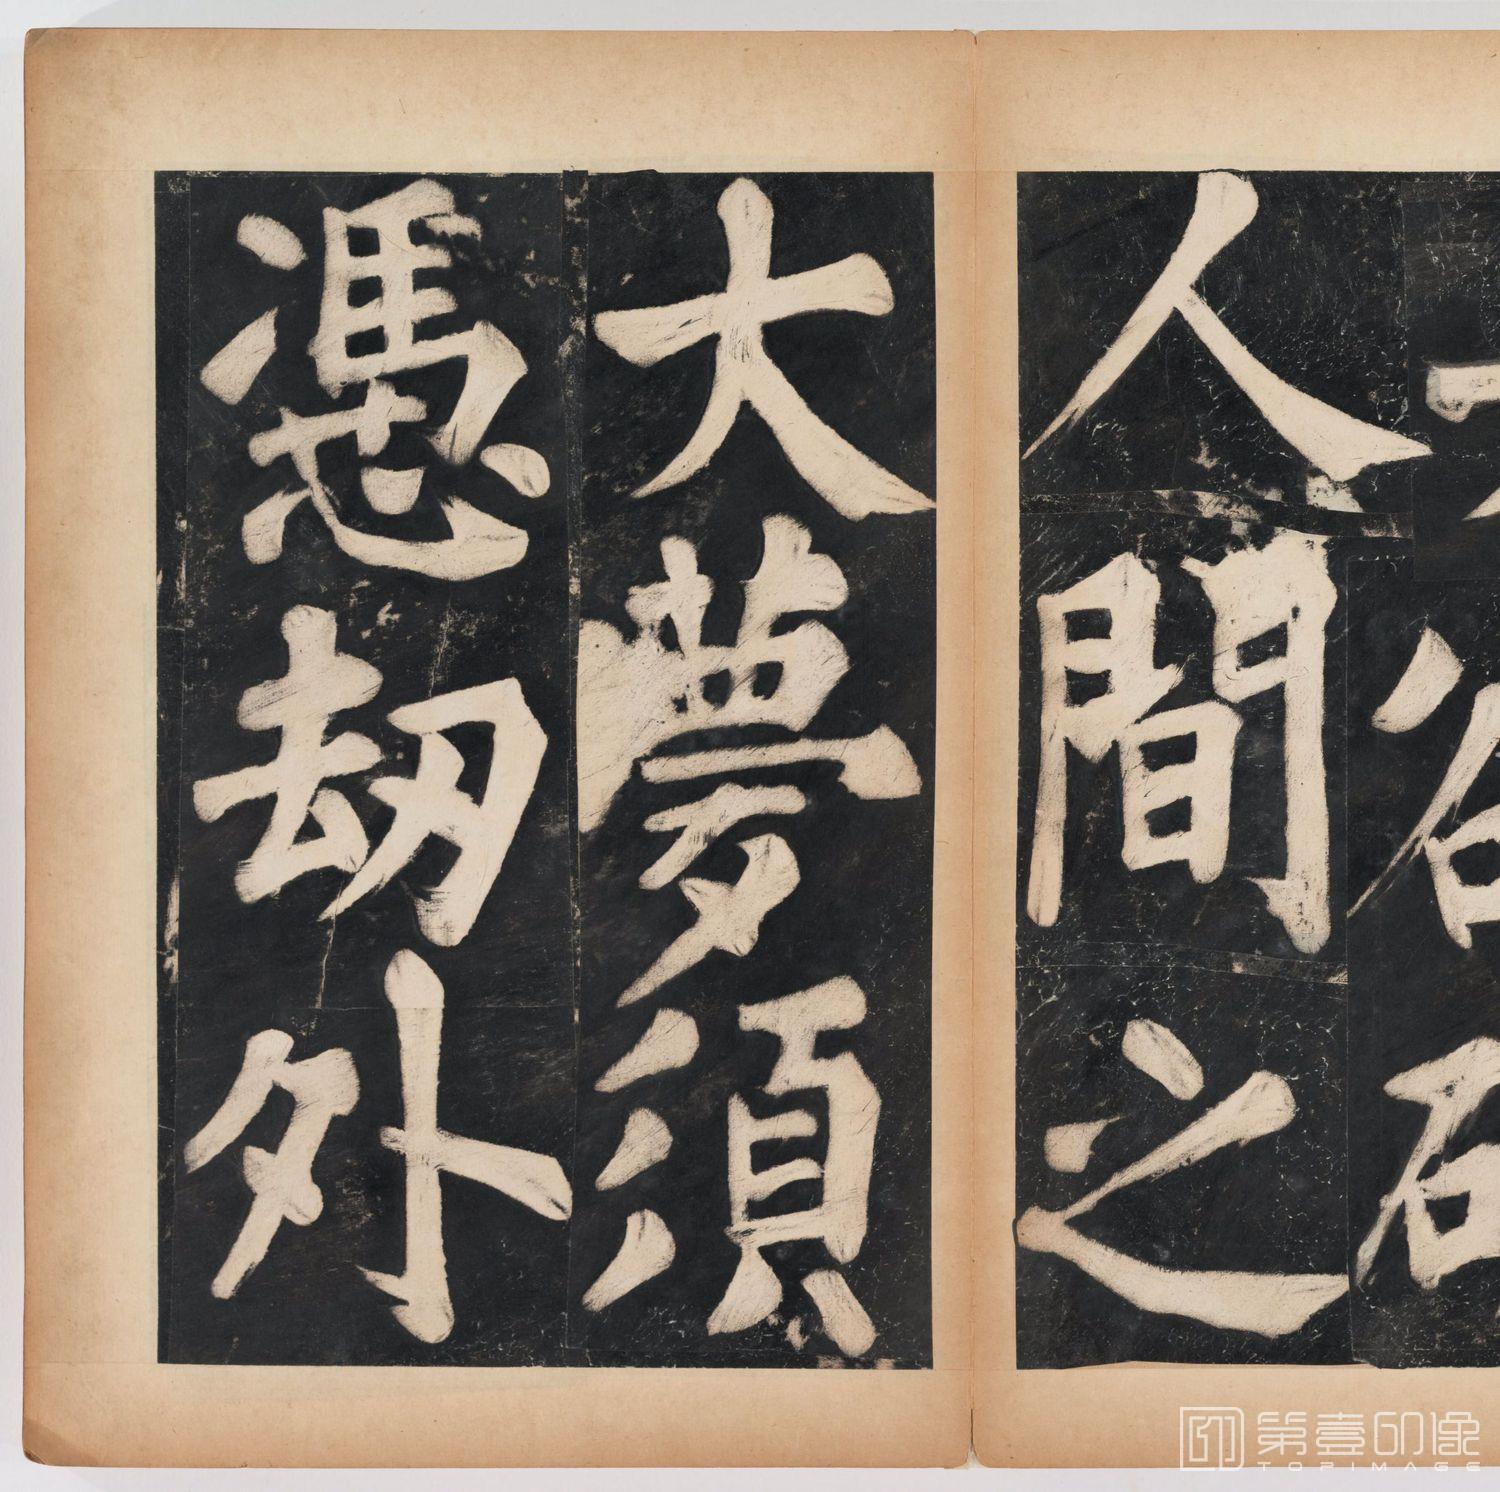 人間之
大夢須
憑刼外
第壹印像
TOPIMAGE